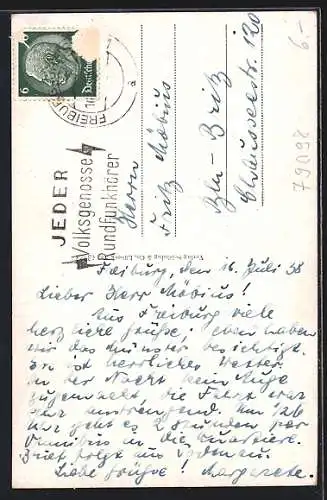 6
Deutsches
FREIBURG
JEDER
Volksgenosse
Rundfunkhörer
Herrn
Fritz Möbius
Bln-Britz
Chausseestr. 120
79098
6.-
Freiburg, den 16. Juli 38
Lieber Herr Möbius!
Aus Freiburg viele
herzliche Grüße! eben haben
wir das Münster besichtigt.
Es ist herrliches Wetter.
In der Nacht kein Auge
zugemacht, die Fahrt war
sehr anstrengend. Um
Uhr geht es 2 Stunden per
Omnibus in die Quartiere.
Brief folgt aus
Liebe Grüße! Margarete.